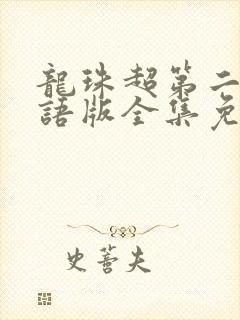 龍珠超第二
語版全集免
史蒼夫